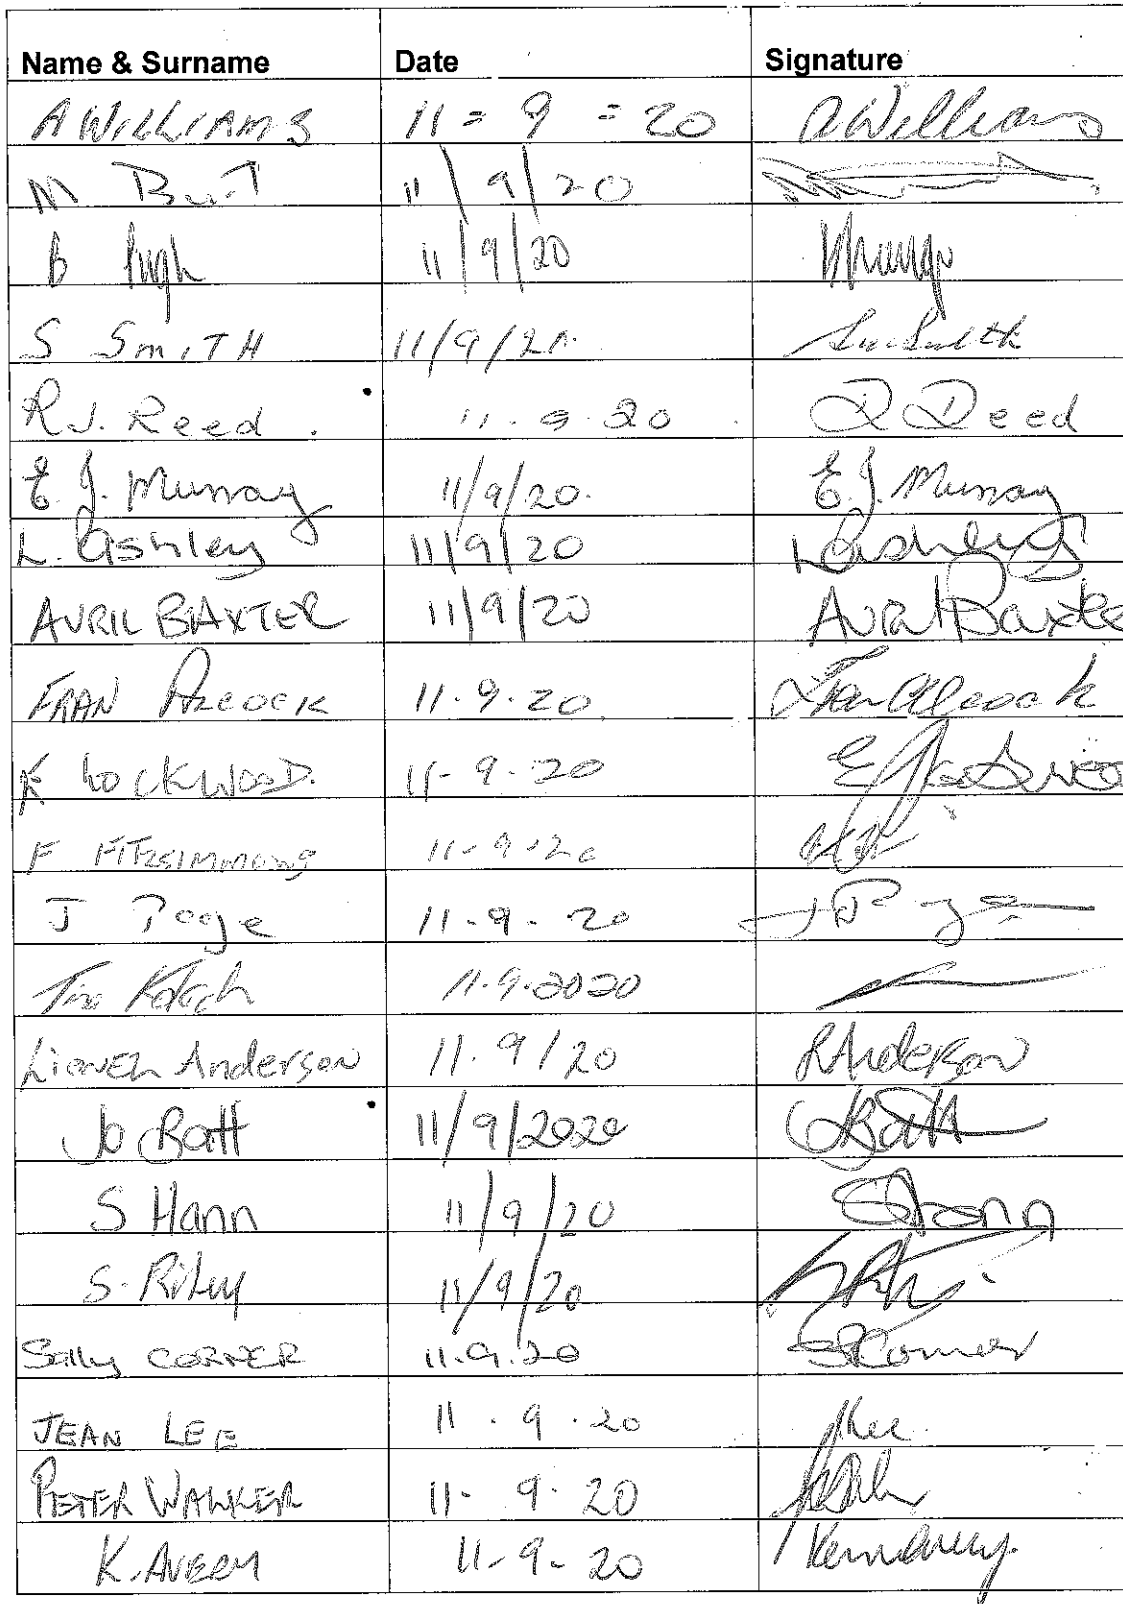 Name & Surname Date Signature
A WILLIAMS 11 = 9 = 20 A Williams
M 11/9/20
B Pugh 11/9/20
S SmITH 11/9/20
R.J. Reed. 11.9.20 R Reed
E.J. Murray 11/9/20. E.J. Murray
L. Ashley 11/9/20 L Ashley
AVRIL BAXTER 11/9/20 Avril Baxter
FRAN ALCOCK 11.9.20. Fran Alcock
K LOCKWOOD. 11-9-20
F FITZSIMMONS 11-9-20
J Page 11-9-20 J Page
Tim 11.9.2020
Lionel Anderson 11.9/20 Anderson
Jo Batt 11/9/2020 Batt
S Hann 11/9/20 S Hann
S. Riley 11/9/20
Sally CORNER 11.9.20 S Corner
JEAN LEE 11.9.20 J Lee
PETER WALKER 11-9.20
K. AVERY 11-9-20